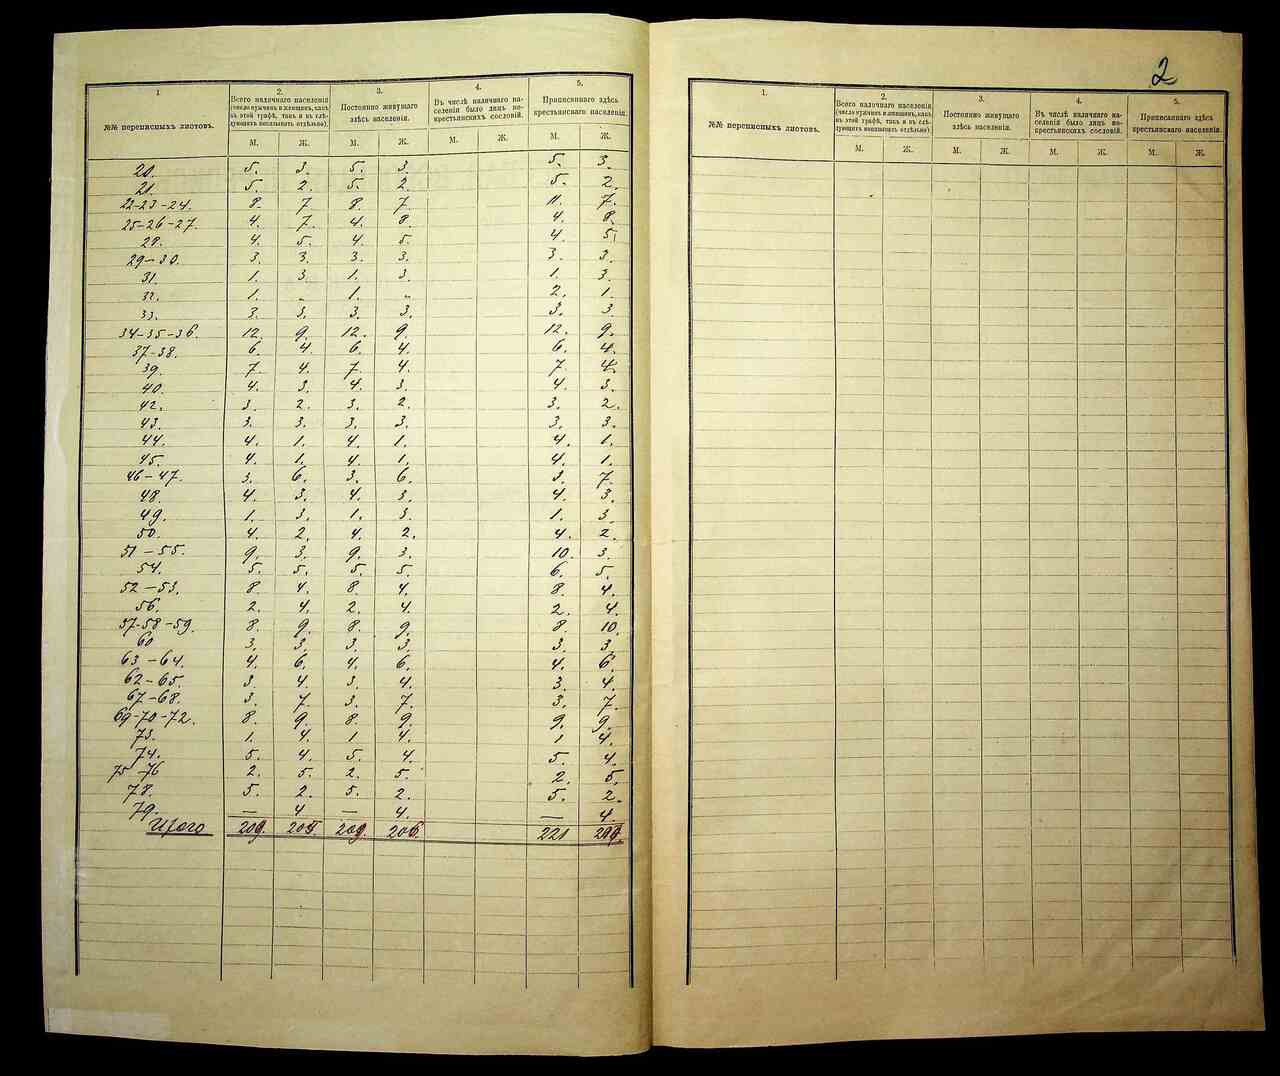 1.
2.
3.
4.
5.
№№ переписныхъ листовъ.
Всего наличнаго населенія (число мужчинъ и женщинъ, какъ въ этой графѣ, такъ и въ слѣдующихъ показывать отдѣльно).
Постоянно живущаго здѣсь населенія.
Въ числѣ наличнаго населенія было лицъ некрестьянскихъ сословій.
Приписаннаго здѣсь крестьянскаго населенія.
М. Ж. М. Ж. М. Ж. М. Ж.
20. 5. 3. 5. 3. 5. 3.
21. 5. 2. 5. 2. 5. 2.
22-23-24. 8. 7 8. 7. 11. 7.
25-26-27. 4. 7. 4. 8. 4. 8.
28. 4. 5. 4. 5. 4. 5.
29-30. 3. 3. 3. 3. 3. 3.
31. 1. 3 1. 3. 1. 3
32. 1. „ 1. „ 2. 1.
33. 3. 3. 3. 3. 3. 3
34-35-36. 12. 9. 12. 9. 12. 9.
37-38. 6. 4. 6. 4. 6. 4.
39. 7. 4. 7. 4. 7. 4.
40. 4. 3. 4. 3. 4. 3.
42. 3. 2. 3. 2. 3. 2.
43. 3. 3. 3. 3. 3. 3.
44. 4. 1. 4. 1. 4. 1.
45. 4. 1. 4. 1. 4. 1.
46-47. 3. 6. 3. 6. 3. 7.
48. 4. 3. 4. 3. 4. 3.
49. 1. 3. 1. 3. 1. 3.
50. 4. 2. 4. 2. 4. 2.
51-55. 9. 3. 9. 3. 10. 3.
54. 5. 5. 5. 5. 6. 5.
52-53. 8. 4. 8. 4. 8. 4.
56. 2. 4. 2. 4. 2. 4.
57-58-59. 8. 9. 8. 9. 8. 10.
60 3. 3. 3. 3. 3. 3.
63-64. 4. 6. 4. 6. 4. 6.
62-65. 3. 4. 3. 4. 3. 4.
67-68. 3. 7. 3. 7. 3. 7.
69-70-72. 8. 9. 8. 9. 9. 9.
73. 1. 4. 1 4. 1 4.
74. 5. 4. 5. 4. 5. 4.
75-76 2. 5. 2. 5. 2. 5.
78. 5. 2. 5. 2. 5. 2.
79. — 4 — 4. — 4.
Итого 209. 205. 209. 206. 221
2
1.
2.
3.
4.
5.
№№ переписныхъ листовъ.
Всего наличнаго населенія (число мужчинъ и женщинъ, какъ въ этой графѣ, такъ и въ слѣдующихъ показывать отдѣльно).
Постоянно живущаго здѣсь населенія.
Въ числѣ наличнаго населенія было лицъ некрестьянскихъ сословій.
Приписаннаго здѣсь крестьянскаго населенія.
М. Ж. М. Ж. М. Ж. М. Ж.